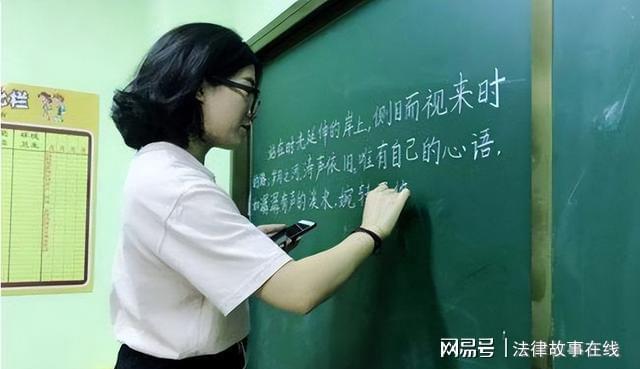 站在时光延伸的岸上，侧目而视来时
的路，岁月之湾，涛声依旧。唯有自己的心语，
如潺潺有声的淡水，婉转
光栏
网易号 法律故事在线